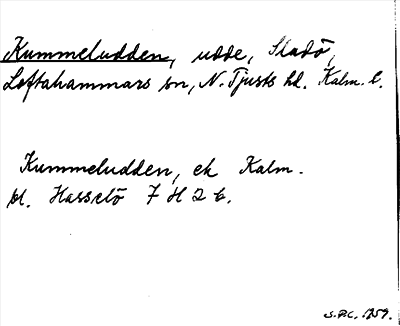 Kummeludden, udde, Sladö,
Loftahammars sn, N. Tjusts hd. Kalm. l.
Kummeludden, ek Kalm.
bl. Hasselö 7 H 2 b.
1959.